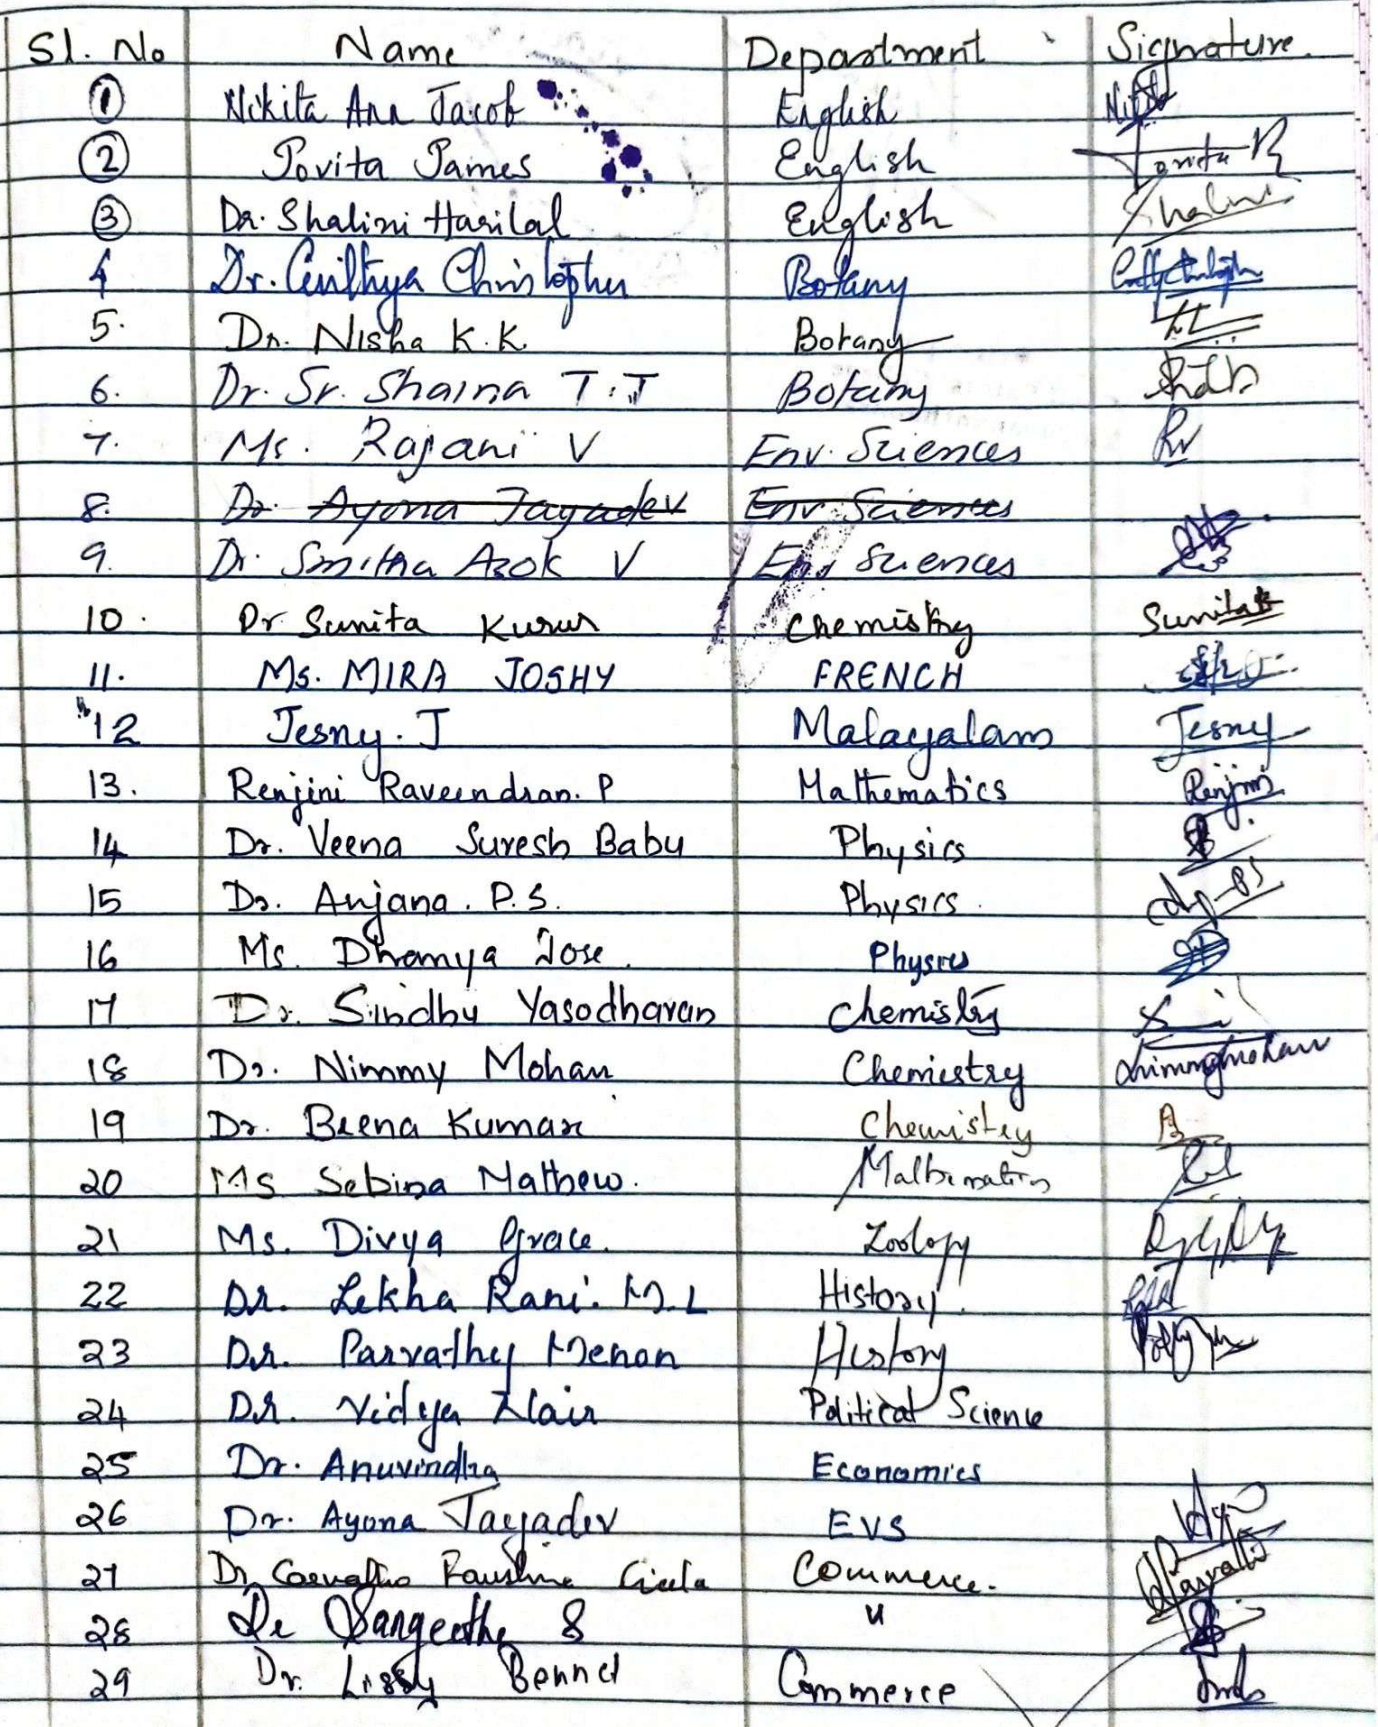 Sl. No Name Department Signature.
1 Nikita Ann Jacob English
2 Jovita James English Jovita
3 Dr. Shalini Harilal English Shalini
4 Dr. Christopher Botany
5. Dr. Nisha K.K. Botany
6. Dr. Sr. Shaina T.J Botany
7. Ms. Rajani V Env. Sciences RV
8. Dr. Ayona Jayadev Env Sciences
9. Dr. Smitha Asok V Env Sciences
10. Dr Sunita Kurur Chemistry Sunita
11. Ms. MIRA JOSHY FRENCH
12 Jesny. J Malayalam Jesny
13. Renjini Raveendran. P Mathematics Renjini
14 Dr. Veena Suresh Babu Physics
15 Dr. Anjana. P.S. Physics
16 Ms. Dhanya Jose. Physics
17 Dr. Sindhu Yasodharan Chemistry
18 Dr. Nimmy Mohan Chemistry Nimmymohan
19 Dr. Beena Kumari Chemistry
20 Ms Sebina Mathew. Mathematics
21 Ms. Divya Grace. Zoology
22 Dr. Lekha Rani. M.L History.
23 Dr. Parvathy Menon History
24 Dr. Vidya Nair Political Science
25 Dr. Anuvindha Economics
26 Dr. Ayona Jayadev EVS
27 Dr Carvalho Commerce.
28 Dr Sangeetha S "
29 Dr. Lissy Bennet Commerce